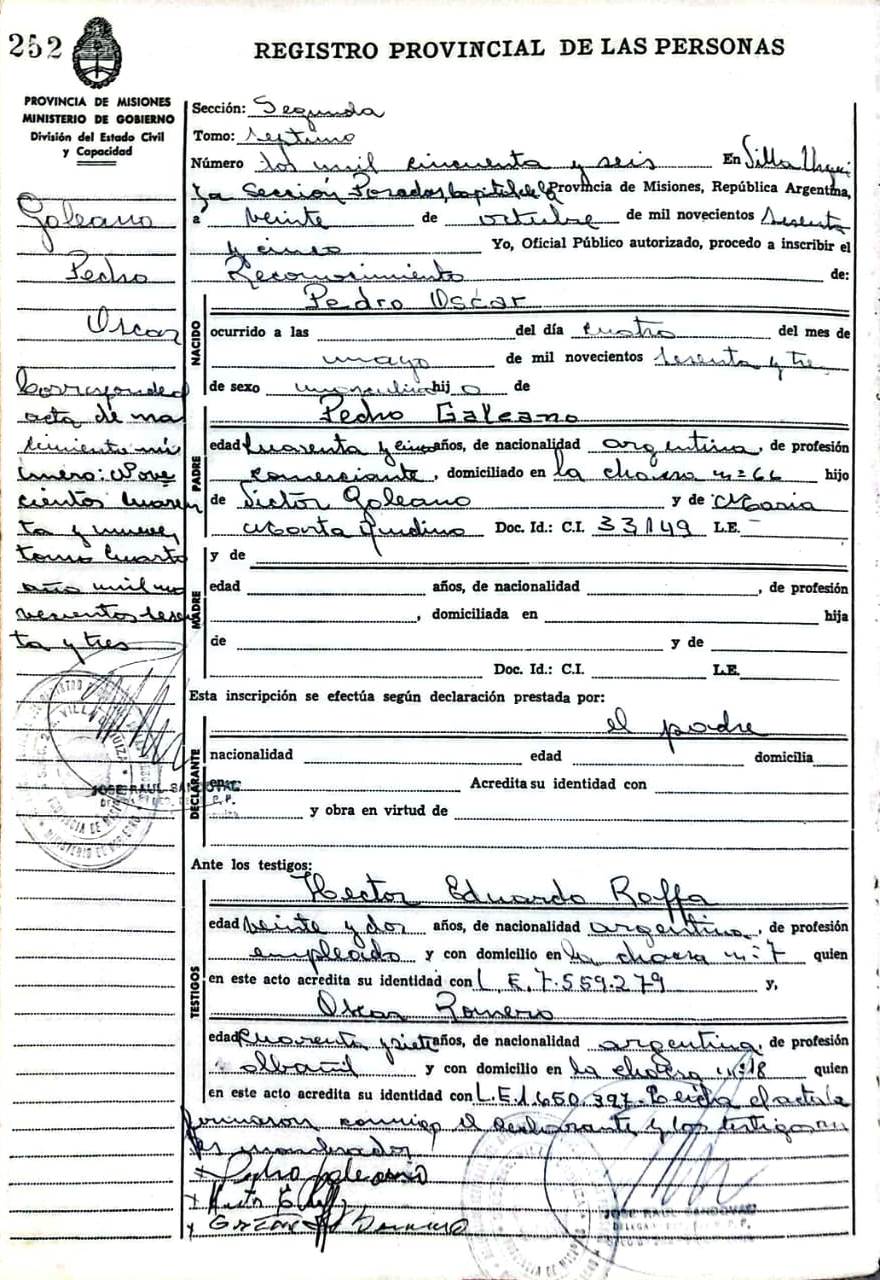 252
REGISTRO PROVINCIAL DE LAS PERSONAS
PROVINCIA DE MISIONES
MINISTERIO DE GOBIERNO
División del Estado Civil
y Capacidad
Galeano
Pedro
Oscar
Corresponde
acta de na
cimiento nú
mero: Nove
cientos cuaren
ta y nueve,
tomo cuarto
año mil no
vecientos sesen
ta y tres
Sección: Segunda
Tomo: septimo
Número dos mil cincuenta y seis En Villa Urqui
za Sección Posadas, Capital de la Provincia de Misiones, República Argentina,
a veinte de octubre de mil novecientos sesenta
y cinco Yo, Oficial Público autorizado, procedo a inscribir el
Reconocimiento de:
NACIDO
Pedro Oscar
ocurrido a las del día cuatro del mes de
mayo de mil novecientos sesenta y tre
de sexo masculino hij o de
PADRE
Pedro Galeano
edad cuarenta y cinco años, de nacionalidad argentina, de profesión
comerciante, domiciliado en la chacra n= 66 hijo
de Victor Galeano y de Maria
Marta Doc. Id.: C.I. 33149 L.E.
MADRE
y de
edad años, de nacionalidad , de profesión
, domiciliada en hija
de y de
Doc. Id.: C.I. L.E.
Esta inscripción se efectúa según declaración prestada por:
DECLARANTE
el padre
nacionalidad edad domicilia
en Acredita su identidad con
y obra en virtud de
JOSE RAUL SANDOVAL
Ante los testigos:
TESTIGOS
Hector Eduardo Raffa
edad veinte y dos años, de nacionalidad argentina, de profesión
empleado y con domicilio en la chacra n=7 quien
en este acto acredita su identidad con L.E.7.559.279 y,
Oscar Romero
edad cuarenta y siete años, de nacionalidad argentina, de profesión
albañil y con domicilio en la chacra n=18 quien
en este acto acredita su identidad con L.E.1.650.397. Leida el acta la
firmaron conmigo el declarante y los testigos
nombrados
Pedro Galeano
JOSE RAUL SANDOVAL